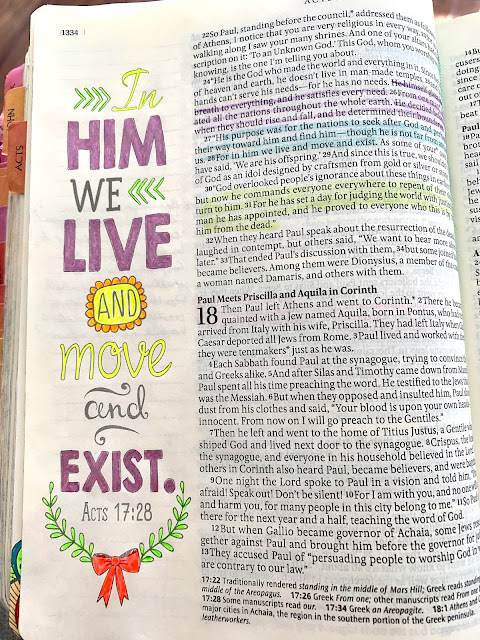 1334
In
HIM
WE
LIVE
AND
move
and
EXIST.
ACTS 17:28
ACTS
JOHN
22So Paul, standing before the council,* addressed them as
of Athens, I notice that you are very religious in every way,
walking along I saw your many shrines. And one of your altars
scription on it: ‘To an Unknown God.’ This God, whom you
knowing, is the one I’m telling you about.
24“He is the God who made the world and everything in it. Since
of heaven and earth, he doesn’t live in man-made temples,
hands can’t serve his needs—for he has no needs. He himself
breath to everything, and he satisfies every need. 26From one
ated all the nations throughout the whole earth. He decided
when they should rise and fall, and he determined their
27“His purpose was for the nations to seek after God and
their way toward him and find him—though he is not far from
us. 28For in him we live and move and exist. As some of your
have said, ‘We are his offspring.’ 29And since this is true, we
of God as an idol designed by craftsmen from gold or silver or
30“God overlooked people’s ignorance about these things in
but now he commands everyone everywhere to repent of their
turn to him. 31For he has set a day for judging the world with
man he has appointed, and he proved to everyone who this is by
him from the dead.”
32When they heard Paul speak about the resurrection of the
laughed in contempt, but others said, “We want to hear more
later.” 33That ended Paul’s discussion with them, 34but some
became believers. Among them were Dionysius, a member of the
a woman named Damaris, and others with them.
Paul Meets Priscilla and Aquila in Corinth
18 Then Paul left Athens and went to Corinth.* 2There he
quainted with a Jew named Aquila, born in Pontus, who had
arrived from Italy with his wife, Priscilla. They had left Italy when
Caesar deported all Jews from Rome. 3Paul lived and worked with
they were tentmakers* just as he was.
4Each Sabbath found Paul at the synagogue, trying to convince
and Greeks alike. 5And after Silas and Timothy came down from
Paul spent all his time preaching the word. He testified to the Jews
was the Messiah. 6But when they opposed and insulted him, Paul
dust from his clothes and said, “Your blood is upon your own
innocent. From now on I will go preach to the Gentiles.”
7Then he left and went to the home of Titius Justus, a Gentile
shiped God and lived next door to the synagogue. 8Crispus, the
the synagogue, and everyone in his household believed in the
others in Corinth also heard Paul, became believers, and were
9One night the Lord spoke to Paul in a vision and told him,
afraid! Speak out! Don’t be silent! 10For I am with you, and no one
and harm you, for many people in this city belong to me.” 11So
there for the next year and a half, teaching the word of God.
12But when Gallio became governor of Achaia, some Jews rose
gether against Paul and brought him before the governor for
13They accused Paul of “persuading people to worship God in
are contrary to our law.”
17:22 Traditionally rendered standing in the middle of Mars Hill; Greek reads standing
middle of the Areopagus. 17:26 Greek From one; other manuscripts read From one
17:28 Some manuscripts read our. 17:34 Greek an Areopagite. 18:1 Athens and
major cities in Achaia, the region in the southern portion of the Greek peninsula.
leatherworkers.